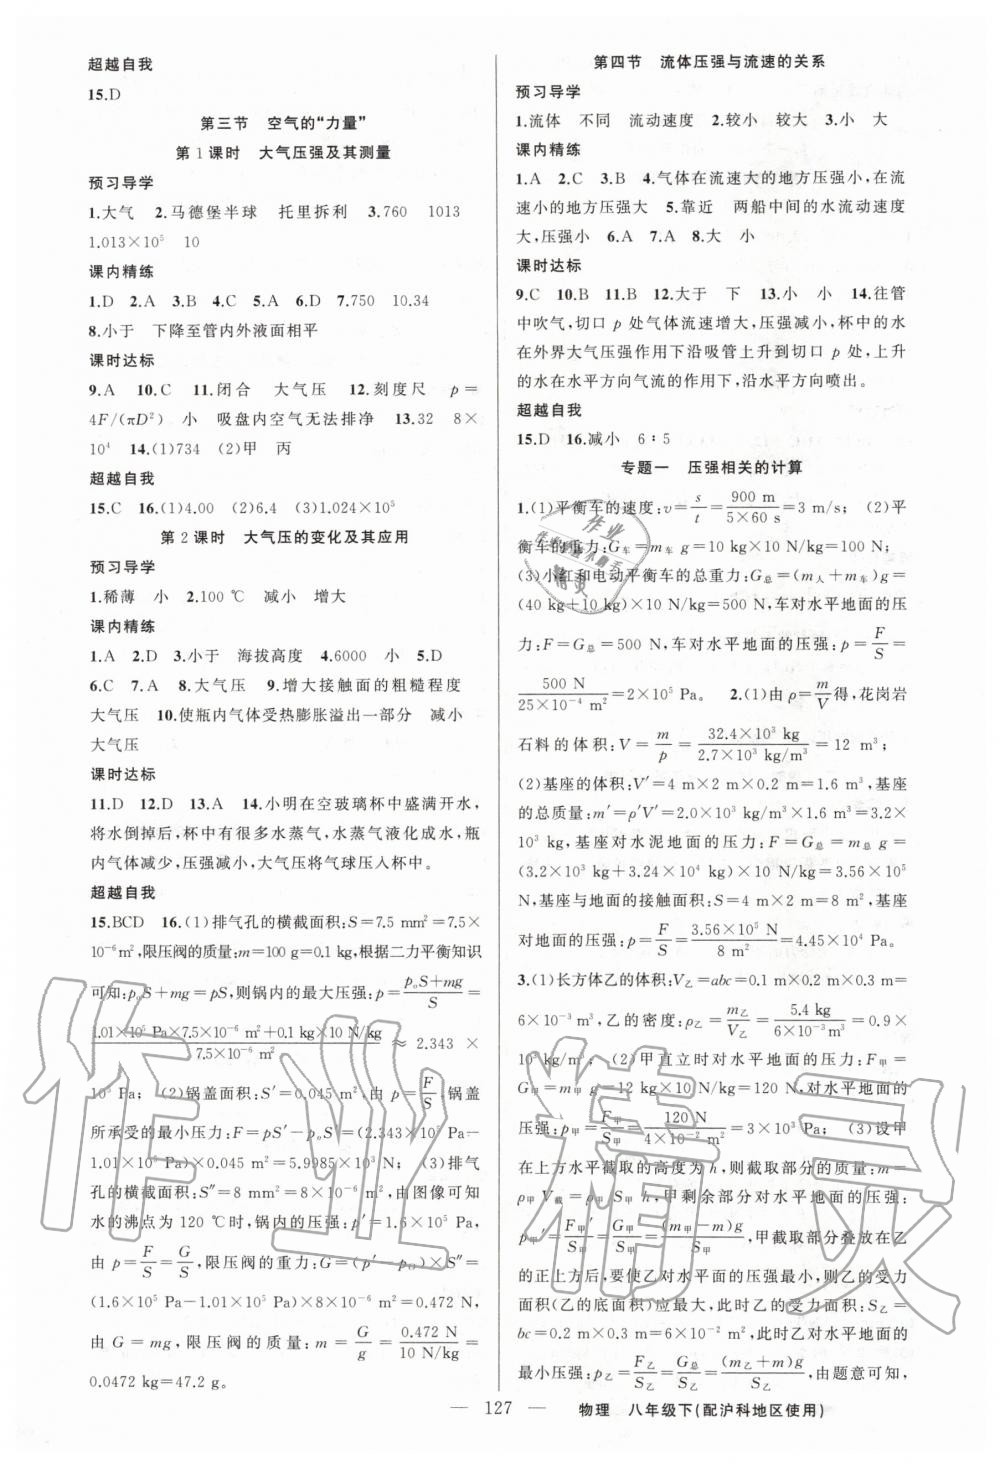 超越自我
15.D
第三节 空气的“力量”
第1课时 大气压强及其测量
预习导学
1.大气 2.马德堡半球 托里拆利 3.760 1013
1.013×10⁵ 10
课内精练
1.D 2.A 3.B 4.C 5.A 6.D 7.750 10.34
8.小于 下降至管内外液面相平
课时达标
9.A 10.C 11.闭合 大气压 12.刻度尺 p=
4F/(πD²) 小 吸盘内空气无法排净 13.32 8×
10⁴ 14.(1)734 (2)甲 丙
超越自我
15.C 16.(1)4.00 (2)6.4 (3)1.024×10⁵
第2课时 大气压的变化及其应用
预习导学
1.稀薄 小 2.100 ℃ 减小 增大
课内精练
1.A 2.D 3.小于 海拔高度 4.6000 小 5.D
6.C 7.A 8.大气压 9.增大接触面的粗糙程度
大气压 10.使瓶内气体受热膨胀溢出一部分 减小
大气压
课时达标
11.D 12.D 13.A 14.小明在空玻璃杯中盛满开水,
将水倒掉后,杯中有很多水蒸气,水蒸气液化成水,瓶
内气体减少,压强减小,大气压将气球压入杯中。
超越自我
15.BCD 16.(1)排气孔的横截面积:S=7.5 mm²=7.5×
10⁻⁶m²,限压阀的质量:m=100 g=0.1 kg,根据二力平衡知识
可知:p₀S+mg=pS,则锅内的最大压强:p=(p₀S+mg)/S=
(1.01×10⁵ Pa×7.5×10⁻⁶ m²+0.1 kg×10 N/kg)/(7.5×10⁻⁶ m²) ≈ 2.343 ×
10⁵ Pa; (2)锅盖面积:S′=0.045 m²,由 p=F/S,锅盖
所承受的最小压力:F=pS′-p₀S′=(2.343×10⁵ Pa-
1.01×10⁵ Pa)×0.045 m²=5.9985×10³ N; (3)排气
孔的横截面积:S″=8 mm²=8×10⁻⁶ m²,由图像可知
水的沸点为 120 ℃时,锅内的压强:p′=1.6×10⁵ Pa,
由 p=F/S=G/S,限压阀的重力:G=(p′-p₀)×S″=
(1.6×10⁵ Pa-1.01×10⁵ Pa)×8×10⁻⁶ m²=0.472 N,
由 G=mg,限压阀的质量:m=G/g=0.472 N/10 N/kg=
0.0472 kg=47.2 g。
第四节 流体压强与流速的关系
预习导学
1.流体 不同 流动速度 2.较小 较大 3.小 大
课内精练
1.A 2.C 3.B 4.气体在流速大的地方压强小,在流
速小的地方压强大 5.靠近 两船中间的水流动速度
大,压强小 6.A 7.A 8.大 小
课时达标
9.C 10.B 11.B 12.大于 下 13.小 小 14.往管
中吹气,切口 p 处气体流速增大,压强减小,杯中的水
在外界大气压强作用下沿吸管上升到切口 p 处,上升
的水在水平方向气流的作用下,沿水平方向喷出。
超越自我
15.D 16.减小 6∶5
专题一 压强相关的计算
1.(1)平衡车的速度:v=s/t=900 m/5×60 s=3 m/s; (2)平
衡车的重力:G车=m车 g=10 kg×10 N/kg=100 N;
(3)小红和电动平衡车的总重力:G总=(m人+m车)g=
(40 kg+10 kg)×10 N/kg=500 N,车对水平地面的压
力:F=G总=500 N,车对水平地面的压强:p=F/S=
500 N/25×10⁻⁴ m²=2×10⁵ Pa。 2.(1)由 ρ=m/V得,花岗岩
石料的体积:V=m/ρ=32.4×10³ kg/2.7×10³ kg/m³=12 m³;
(2)基座的体积:V′=4 m×2 m×0.2 m=1.6 m³,基座
的总质量:m′=ρ′V′=2.0×10³ kg/m³×1.6 m³=3.2×
10³ kg,基座对水泥地面的压力:F=G总=m总 g=
(3.2×10³ kg+3.24×10⁴ kg)×10 N/kg=3.56×10⁵
N,基座与地面的接触面积:S=4 m×2 m=8 m²,基座
对地面的压强:p=F/S=3.56×10⁵ N/8 m²=4.45×10⁴ Pa。
3.(1)长方体乙的体积:V乙=abc=0.1 m×0.2 m×0.3 m=
6×10⁻³ m³,乙的密度:ρ乙=m乙/V乙=5.4 kg/6×10⁻³m³=0.9×
10³ kg/m³; (2)甲直立时对水平地面的压力:F甲=
G甲=m甲 g=12 kg×10 N/kg=120 N,对水平地面的
压强:p甲=F甲/S甲=120 N/4×10⁻² m²=3×10³ Pa; (3)设甲
在上方水平截取的高度为 h,则截取部分的质量:m=
ρ甲 V截=ρ甲 S甲 h,甲剩余部分对水平地面的压强:
p甲′=F甲′/S甲=G甲′/S甲=(m甲-m)g/S甲,甲截取部分叠放在乙
的正上方后,要使乙对水平地面的压强最小,则乙的受力
面积(乙的底面积)应最大,此时乙的受力面积:S乙=
bc=0.2 m×0.3 m=6×10⁻² m²,此时乙对水平地面的
最小压强:p乙=F乙/S乙=G总/S乙=(m乙+m)g/S乙,由题意可知,
— 127 — 物理 八年级下(配沪科地区使用)
作业精灵